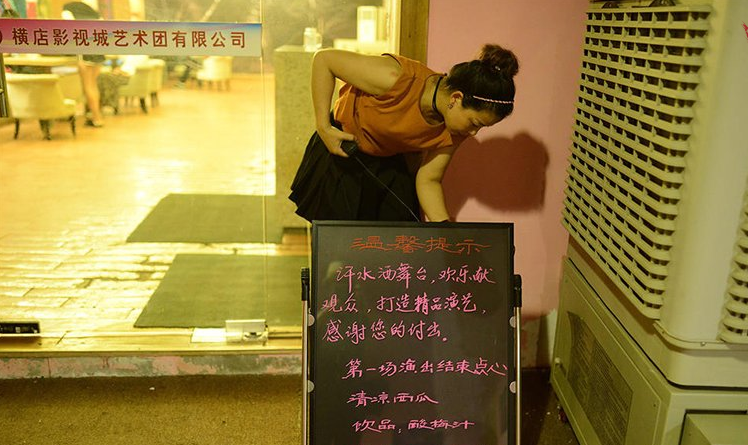 横店影视城艺术团有限公司
温馨提示
汗水洒舞台，欢乐献
观众，打造精品演艺，
感谢您的付出。
第一场演出结束点心
清凉西瓜
饮品：酸梅汁